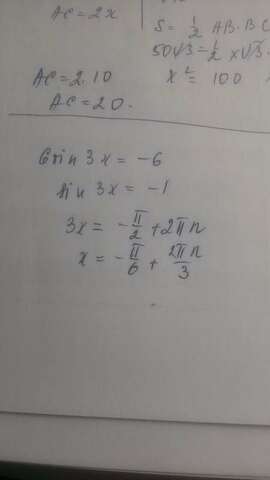 AC = 2x
S = 1/2 AB. BC
50√3 = 1/2 x√3.
AC = 2.10
x² = 100
AC = 20.
6sin 3x = -6
sin 3x = -1
3x = -π/2 + 2πn
x = -π/6 + 2πn/3